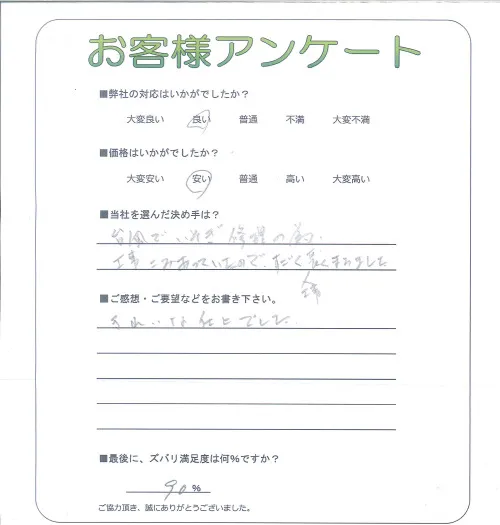 お客様アンケート
■弊社の対応はいかがでしたか？
大変良い 良い 普通 不満 大変不満
■価格はいかがでしたか？
大変安い 安い 普通 高い 大変高い
■当社を選んだ決め手は？
台風でいそぎ修理の為
工事こみあっていたので、 すみました
工事
■ご感想・ご要望などをお書き下さい。
きれいな仕上でした。
■最後に、ズバリ満足度は何％ですか？
90 %
ご協力頂き、誠にありがとうございました。